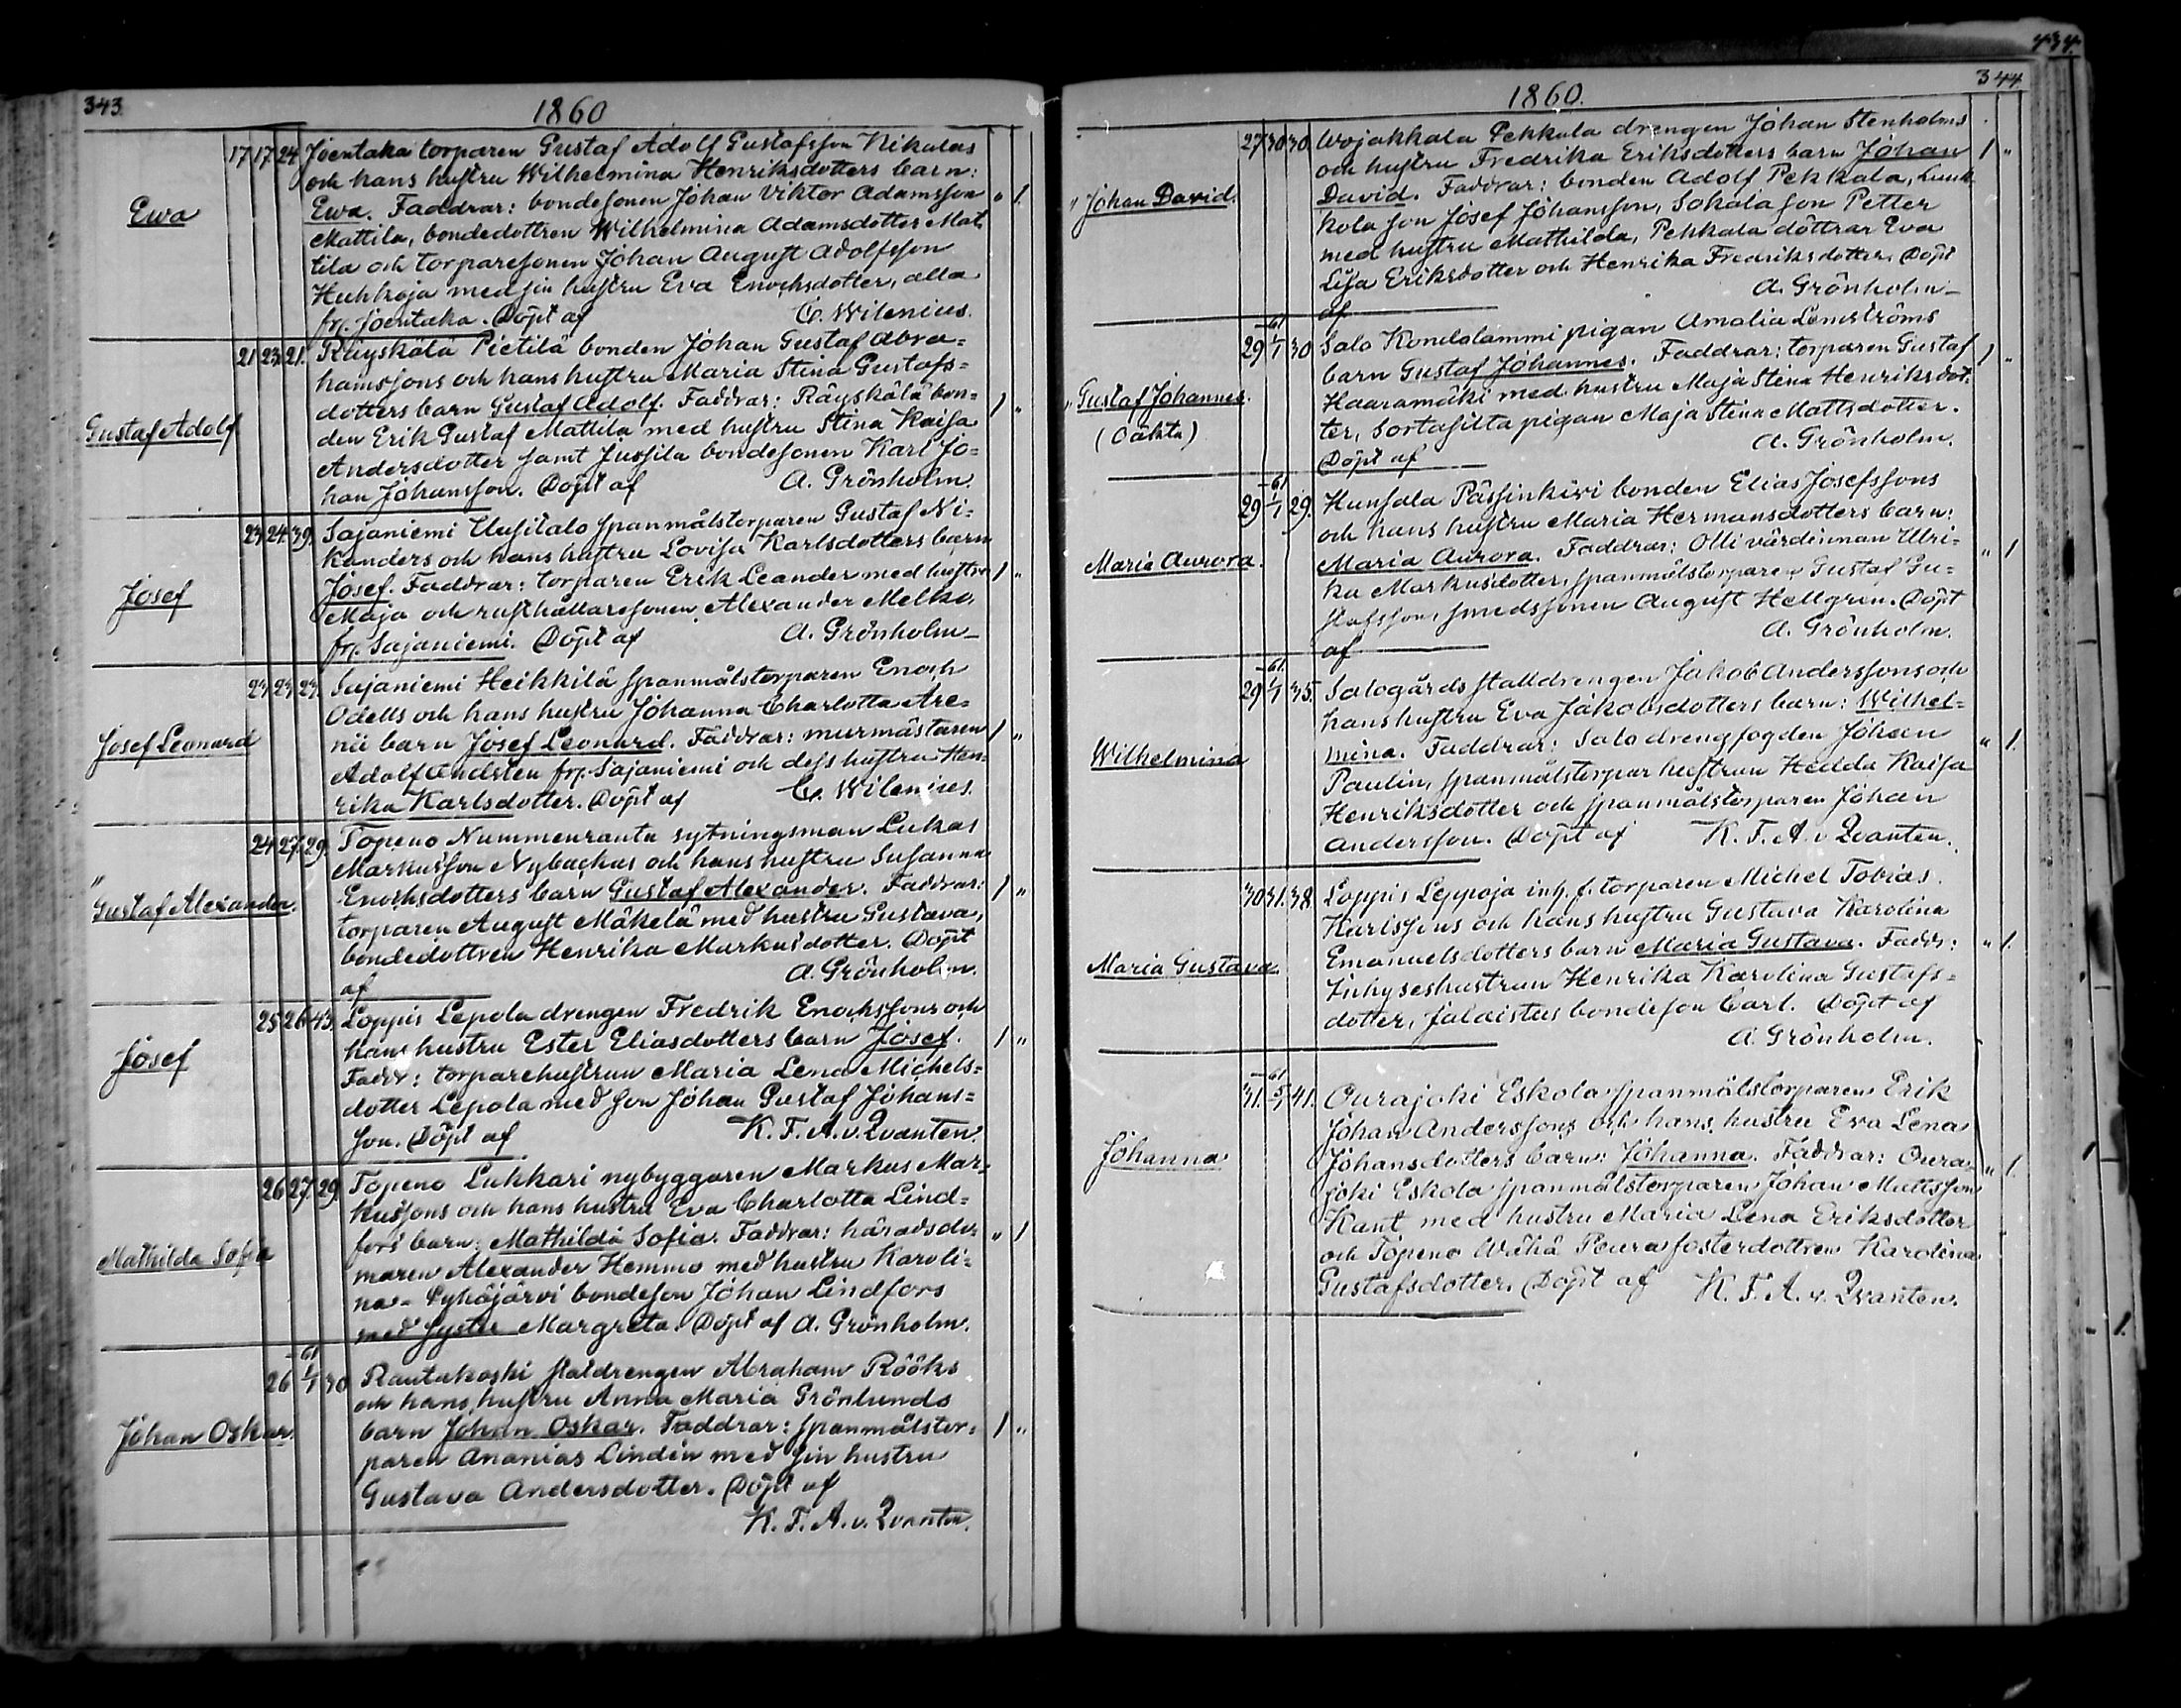 343.
1860
17 17 24 Joentaka torparen Gustaf Adolf Gustafsson Nikalas
och hans hustru Wilhelmina Henriksdotters barn:
Ewa
Ewa. Faddrar: bondesonen Johan Viktor Adamsson " 1.
Mattila, bondedottren Wilhelmina Adamsdotter Mat-
tila och torparesonen Johan August Adolfsson
Huhkoja med sin hustru Eva Enochsdotter, alla
frn Joentaka. Döpt af C. Wilenius.
21 23 21. Räyskälä Pietilä bonden Johan Gustaf Abra=
hamssons och hans hustru Maria Stina Gustafs=
Gustaf Adolf
dotters barn Gustaf Adolf. Faddrar: Räyskälä bon= 1 "
den Erik Gustaf Mattila med hustru Stina Kaisa
Andersdotter samt Jussila bondesonen Karl Jo=
han Johansson. Döpt af A. Grönholm.
23 24 39. Sajaniemi Uusitalo spanmålstorparen Gustaf Ni=
kanders och hans hustru Lovisa Karlsdotters barn
Josef
Josef. Faddrar: torparen Erik Leander med hustru 1 "
Maja och rusthållaresonen Alexander Melko,
frn Sajaniemi. Döpt af A. Grönholm_
23 23 23. Sajaniemi Heikkilä spanmålstorparen Enoch
Odells och hans hustru Johanna Charlotta Are=
Josef Leonard
nii barn Josef Leonard. Faddrar: murmästaren 1 "
Adolf Andsten frn Sajaniemi och dess hustru Hen
rika Karlsdotter. Döpt af C. Wilenius.
24 27 29. Topeno Nummenranta sytningsman Lukas
Markusson Nybackas och hans hustru Susanna
" Gustaf Alexander.
Enochsdotters barn Gustaf Alexander. Faddrar: 1 "
torparen August Mäkelä med hustru Gustava,
bondedottren Henrika Markusdotter. Döpt
af A. Grönholm.
25 26 43. Loppis Lepola drengen Fredrik Enochssons och
Josef
hans hustru Ester Eliasdotters barn Josef. 1 "
Faddr: torparehustrun Maria Lena Michels=
dotter Lepola med son Johan Gustaf Johans=
son. Döpt af K. F. A. v. Qvanten.
26 27 29 Topeno Lukkari nybyggaren Markus Mar=
kussons och hans hustru Eva Charlotta Lind=
Mathilda Sofia
fors barn: Mathilda Sofia. Faddrar: häradsdo= " 1
maren Alexander Hemmo med hustru Karoli=
na- Pyhäjärvi bondeson Johan Lindfors
med syster Margreta. Döpt af A. Grönholm.
26 -61 1/1 30 Rautakoski staldrengen Abraham Rööks
och hans hustru Anna Maria Grönlunds
Johan Oskar.
barn Johan Oskar. Faddrar: spanmålstor= 1 "
paren Ananias Lindén med sin hustru
Gustava Andersdotter. Döpt af
K. F. A. v. Qvanten.
344
1860.
27 30 30. Wojakkala Pekkala drengen Johan Stenholms
och hustru Fredrika Eriksdotters barn Johan 1 "
" Johan David.
David. Faddrar: bonden Adolf Pekkala, Luuk
kola son Josef Johansson, Sokala son Petter
med hustru Mathilda, Pekkala döttrar Eva
Lisa Eriksdotter och Henrika Fredriksdotter. Döpt
af A. Grönholm_
29 -61 1/1 30 Salo Kondolammi pigan Amalia Lemströms
" Gustaf Johannes.
(Oäkta)
barn Gustaf Johannes. Faddrar: torparen Gustaf 1 "
Haaramäki med hustru Maja Stina Henriksdot-
ter, Sortasilta pigan Maja Stina Mattsdotter.
Döpt af A. Grönholm.
29 -61 1/1 29. Hunsala Pässinkivi bonden Elias Josefssons
och hans hustru Maria Hermansdotters barn:
Maria Aurora.
Maria Aurora. Faddrar: Olli värdinnan Ulri= " 1
ka Markusdotter, spanmålstorparen Gustaf Gu=
stafsson, smedssonen August Hellgren. Döpt
af A. Grönholm.
29 -61. 1/1 35. Salogårds stalldrengen Jakob Anderssons och
hans hustru Eva Jakobsdotters barn: Wilhel=
Wilhelmina
mina. Faddrar: Salo drengfogden Johan " 1.
Paulin, spanmålstorpar hustrun Hedda Kaisa
Henriksdotter och spanmålstorparen Johan
Andersson. Döpt af K. F. A. v Qvanten.
30 31. 38. Loppis Leppoja inh. f. torparen Michel Tobias
Karlssons och hans hustru Gustava Karolina
Maria Gustava.
Emanuelsdotters barn Maria Gustava. Faddr: " 1.
Inhyseshustrun Henrika Karolina Gustafs=
dotter, Jalaistus bondeson Carl. Döpt af
A. Grönholm.
31. -61 5/1 41. Ourajoki Eskola spanmålstorparen Erik
Johan Anderssons och hans hustru Eva Lena
Johanna
Johansdotters barn: Johanna. Faddrar: Oura= " 1.
joki Eskola spanmålstorparen Johan Mattsson
Kant med hustru Maria Lena Eriksdotter
och Topeno Wähä Peura fosterdottren Karolina
Gustafsdotter. Döpt af K. F. A. v. Qvanten.